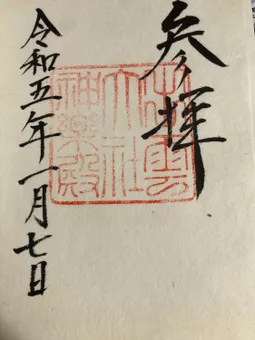 参拝
出雲
大社
神樂殿
令和五年一月七日